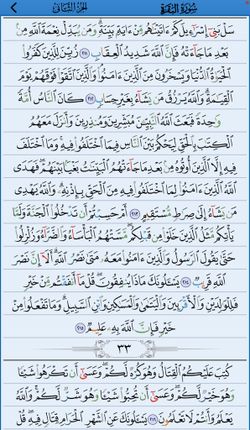 الجزء الثاني سورة البقرة
سَلْ بَنِي إِسْرَائِيلَ كَمْ آتَيْنَاهُم مِّنْ آيَةٍ بَيِّنَةٍ وَمَن يُبَدِّلْ نِعْمَةَ اللَّهِ مِن
بَعْدِ مَا جَاءَتْهُ فَإِنَّ اللَّهَ شَدِيدُ الْعِقَابِ ٢١١ زُيِّنَ لِلَّذِينَ كَفَرُوا
الْحَيَاةُ الدُّنْيَا وَيَسْخَرُونَ مِنَ الَّذِينَ آمَنُوا وَالَّذِينَ اتَّقَوْا فَوْقَهُمْ يَوْمَ
الْقِيَامَةِ وَاللَّهُ يَرْزُقُ مَن يَشَاءُ بِغَيْرِ حِسَابٍ ٢١٢ كَانَ النَّاسُ أُمَّةً
وَاحِدَةً فَبَعَثَ اللَّهُ النَّبِيِّينَ مُبَشِّرِينَ وَمُنذِرِينَ وَأَنزَلَ مَعَهُمُ
الْكِتَابَ بِالْحَقِّ لِيَحْكُمَ بَيْنَ النَّاسِ فِيمَا اخْتَلَفُوا فِيهِ وَمَا اخْتَلَفَ
فِيهِ إِلَّا الَّذِينَ أُوتُوهُ مِن بَعْدِ مَا جَاءَتْهُمُ الْبَيِّنَاتُ بَغْيًا بَيْنَهُمْ فَهَدَى
اللَّهُ الَّذِينَ آمَنُوا لِمَا اخْتَلَفُوا فِيهِ مِنَ الْحَقِّ بِإِذْنِهِ وَاللَّهُ يَهْدِي
مَن يَشَاءُ إِلَى صِرَاطٍ مُّسْتَقِيمٍ ٢١٣ أَمْ حَسِبْتُمْ أَن تَدْخُلُوا الْجَنَّةَ وَلَمَّا
يَأْتِكُم مَّثَلُ الَّذِينَ خَلَوْا مِن قَبْلِكُم مَّسَّتْهُمُ الْبَأْسَاءُ وَالضَّرَّاءُ وَزُلْزِلُوا
حَتَّى يَقُولَ الرَّسُولُ وَالَّذِينَ آمَنُوا مَعَهُ مَتَى نَصْرُ اللَّهِ أَلَا إِنَّ نَصْرَ
اللَّهِ قَرِيبٌ ٢١٤ يَسْأَلُونَكَ مَاذَا يُنفِقُونَ قُلْ مَا أَنفَقْتُم مِّنْ خَيْرٍ
فَلِلْوَالِدَيْنِ وَالْأَقْرَبِينَ وَالْيَتَامَى وَالْمَسَاكِينِ وَابْنِ السَّبِيلِ وَمَا تَفْعَلُوا مِنْ
خَيْرٍ فَإِنَّ اللَّهَ بِهِ عَلِيمٌ ٢١٥
٣٣
كُتِبَ عَلَيْكُمُ الْقِتَالُ وَهُوَ كُرْهٌ لَّكُمْ وَعَسَى أَن تَكْرَهُوا شَيْئًا
وَهُوَ خَيْرٌ لَّكُمْ وَعَسَى أَن تُحِبُّوا شَيْئًا وَهُوَ شَرٌّ لَّكُمْ وَاللَّهُ
يَعْلَمُ وَأَنتُمْ لَا تَعْلَمُونَ ٢١٦ يَسْأَلُونَكَ عَنِ الشَّهْرِ الْحَرَامِ قِتَالٍ فِيهِ قُلْ